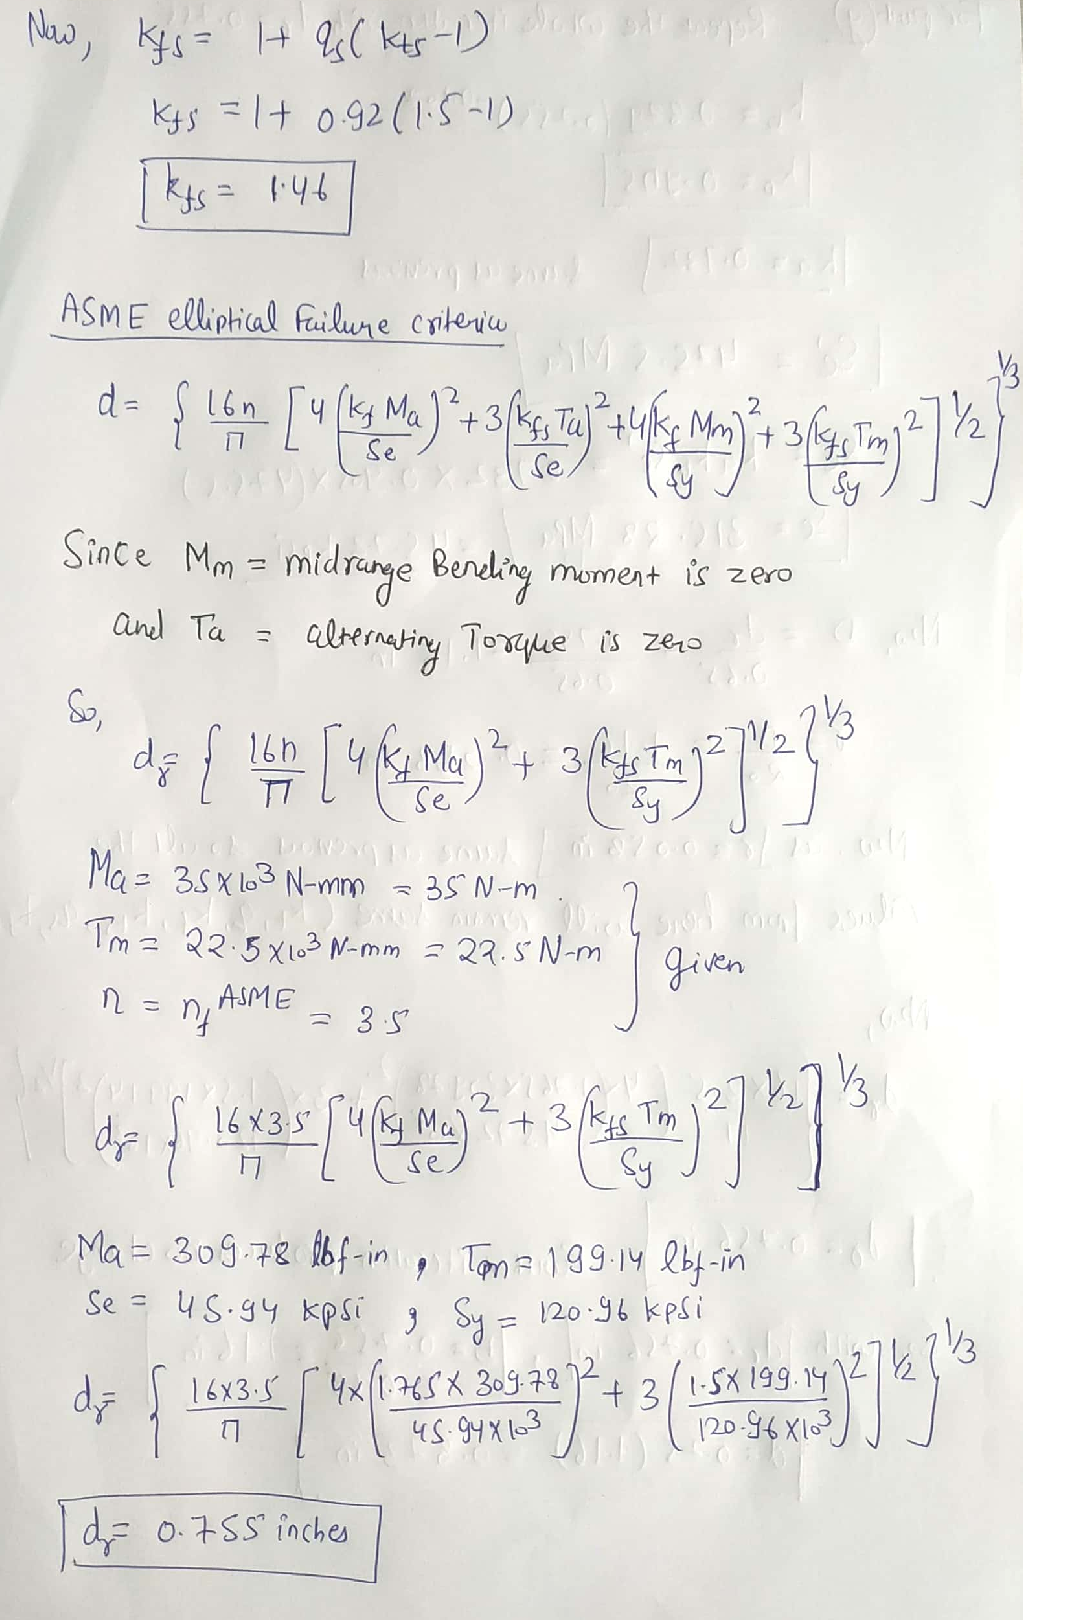 Now, Kfs = 1+ qs( kts-1)
Kfs = 1+ 0.92(1.5-1)
kfs = 1.46
ASME elliptical Failure criteria
d = { 16n/π [4(kf Ma/Se)² + 3(kfs Ta/Se)² + 4(kf Mm/Sy)² + 3(kfs Tm/Sy)²]^1/2 }^1/3
Since Mm = midrange Bending moment is zero
and Ta = alternating Torque is zero
So,
dr = { 16n/π [4(kf Ma/Se)² + 3(kfs Tm/Sy)²]^1/2 }^1/3
Ma = 35×10³ N-mm = 35 N-m.
Tm = 22.5×10³ N-mm = 22.5 N-m } given
n = nf ASME = 3.5
dr = { 16×3.5/π [4(kf Ma/Se)² + 3(kfs Tm/Sy)²]^1/2 }^1/3
Ma = 309.78 lbf-in, Tm = 199.14 lbf-in
Se = 45.94 kpsi, Sy = 120.96 kpsi
dr = { 16×3.5/π [4×(1.765×309.78/45.94×10³)² + 3(1.5×199.14/120.96×10³)²]^1/2 }^1/3
dr = 0.755 inches